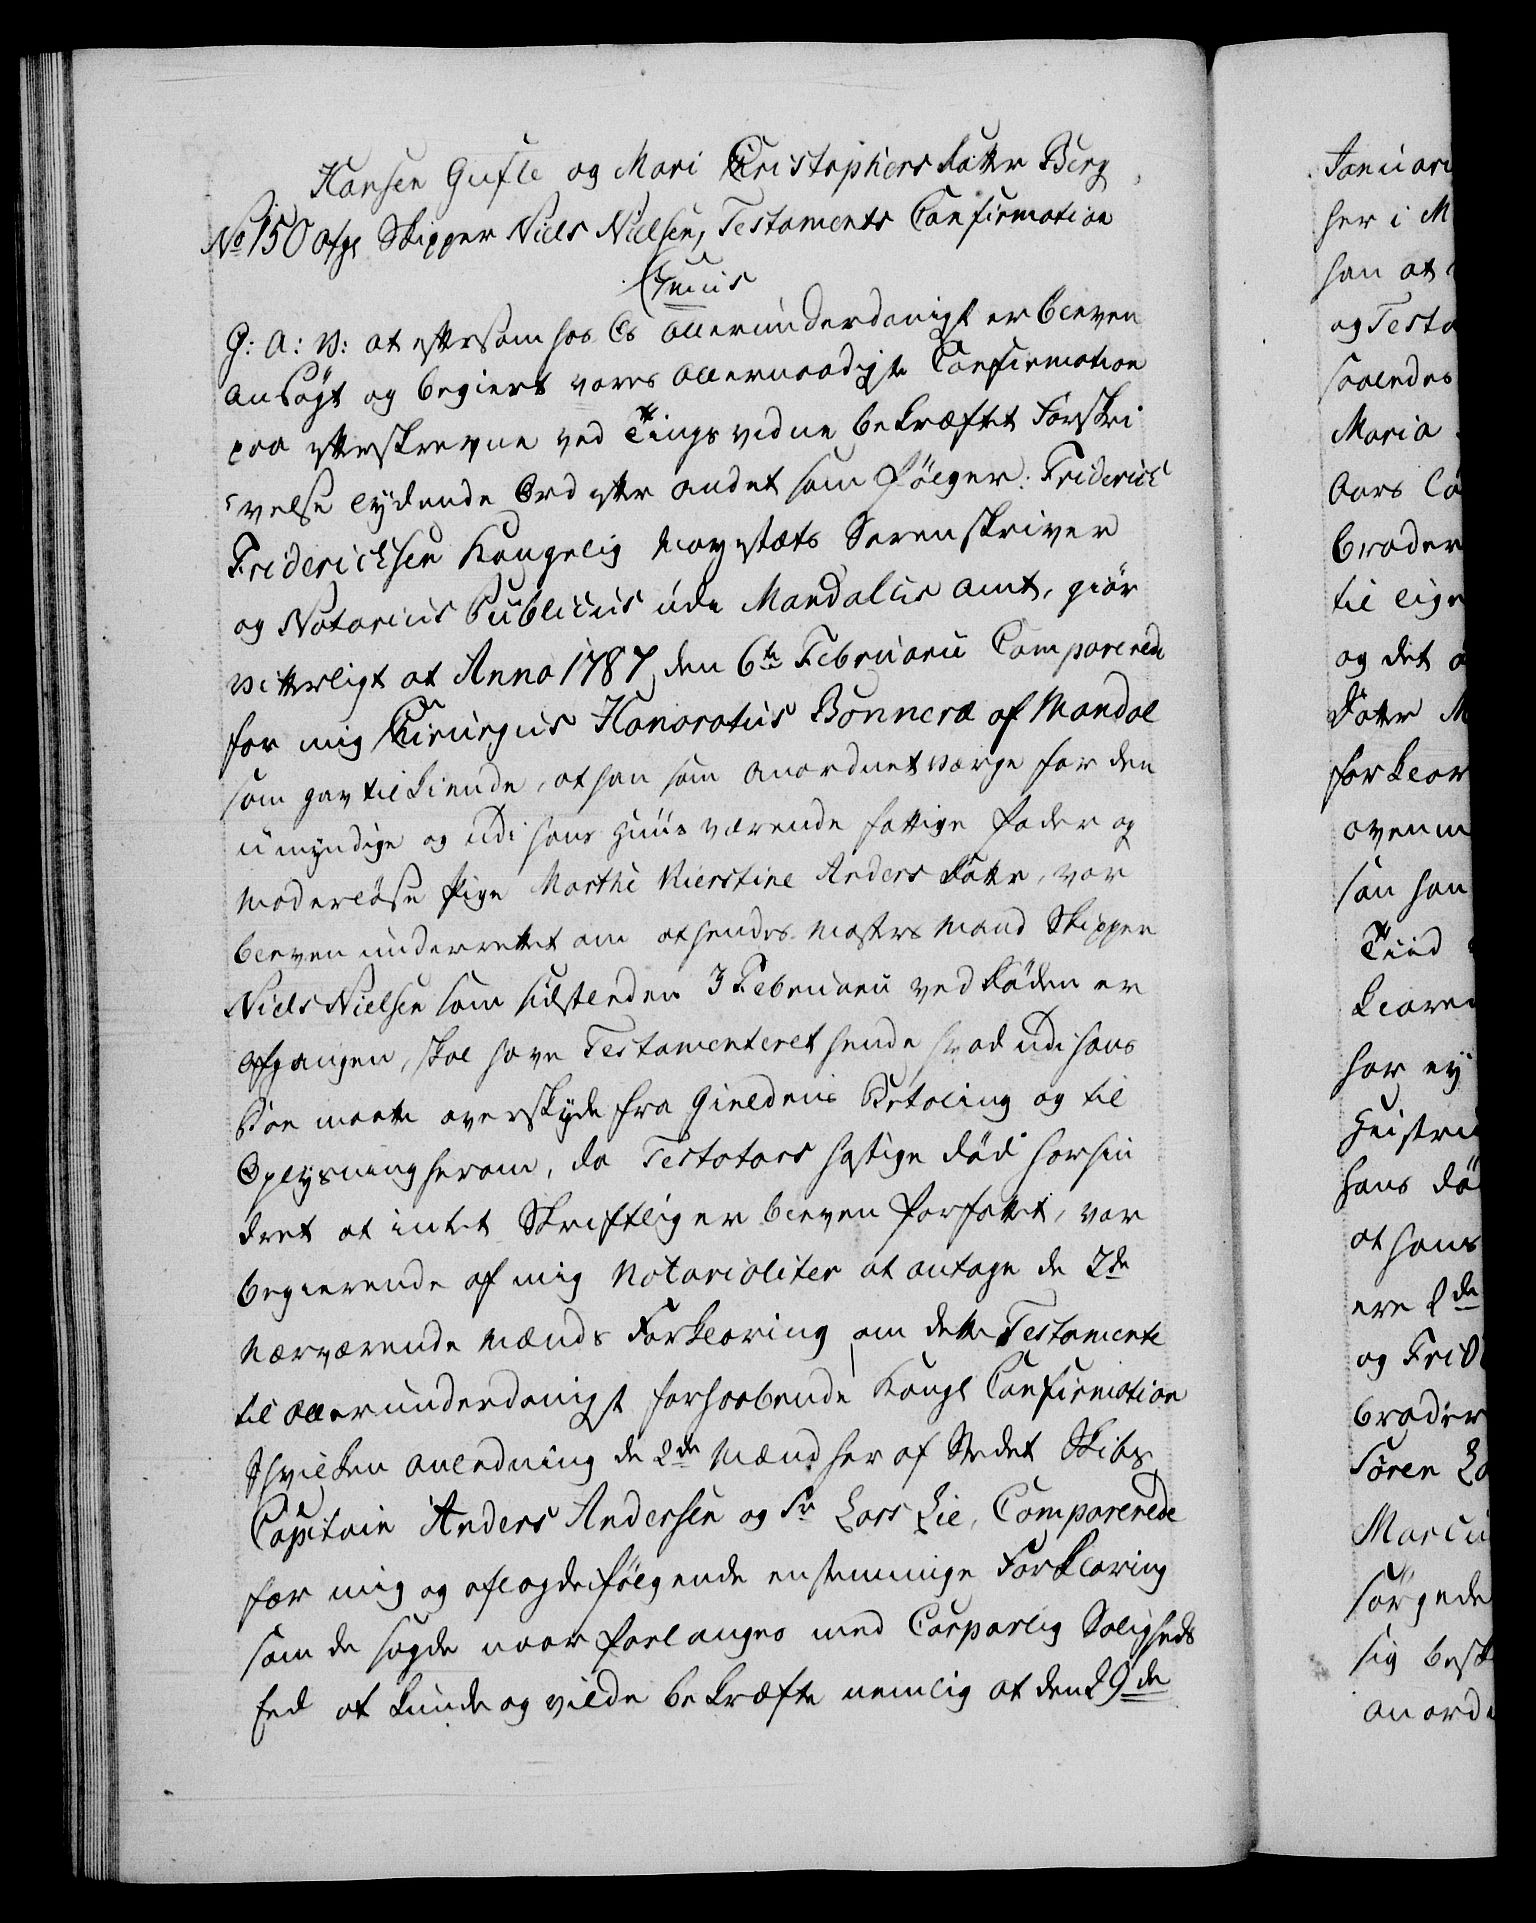 Hansen Gusle og Mari Christophers datter Berg
No 150 Afge Skipper Niels Nielsen, Testaments Confirmation
G: A: V: at eftersom hos Os allerunderdanigst er bleven
ansøgt og begiert vores allernaadigste Confirmation
paa efterskrevne ved Tings vidne bekræftet Forskri
velse lydende Ord efter andet som følger: Friderich
Friderichsen Kongelig Mayestæts Sorenskriver
og Notarius Publicus udi Mandals amt, giør
vitterligt at Anno 1787 den 6te Februarii Comparerede
for mig Chirurgus Honoratus Bonnera af Mandal
som gav tilkiende, at han som anordnet værge for den
umyndige og udi hans Huus værende fattige fader og
moderløse Pige Marthe Kierstine Anders datter, var
bleven underrettet om at hendes Mosters Mand Skipper
Niels Nielsen som sidstleden 3 Februarii ved døden er
afgangen, skal have Testamenteret hende hvad udi hans
Boe maatte overskyde fra Gieldens Betaling og til
Oplysning herom, da Testators hastige død har hin
dret at intet Skriftlig er bleven forfattet, var
begierende af mig Notarialiter at antage de 2de
nærværende Mænds Forklaring om dette Testamente
til allerunderdanigst forhaabende Kongl Confirmation
I hvilken anledning de 2de Mænd her af Stedet Skibs
Capitain Anders Andersen og Sr Lars Lie, Comparerede
for mig og aflagde følgende enstemmige Forklaring
som de sagde naar forlanges med Corporlig Saligheds
Eed at kunde og vilde bekræfte nemlig at den 29de

Januari
her i M
han at
og Testa
saaledes
Maria
Aars
broder
til lige
og det
datter M
forklar
ovenm
han
Tiid
klare
har ey
hans dø
at hans
ere 2de
og Frid
broder
Søren La
Marcu
sørgede
sig besk
anord